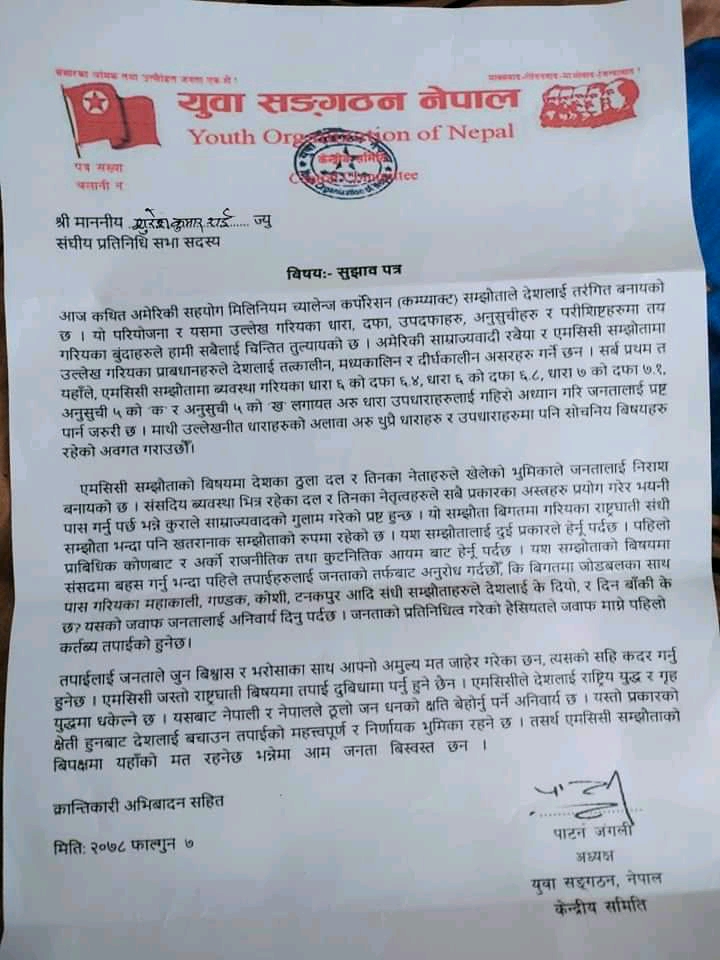 संसारका श्रमिक तथा उत्पीडित जनता एक हौं !
मार्क्सवाद-लेनिनवाद-माओवाद जिन्दावाद !
युवा सङ्गठन नेपाल
Youth Organization of Nepal
केन्द्रीय समिति
Central Committee
पत्र संख्या
चलानी नं
श्री माननीय सुरेश कुमार राई ज्यु
संघीय प्रतिनिधि सभा सदस्य
विषय:- सुझाव पत्र
आज कथित अमेरिकी सहयोग मिलिनियम च्यालेन्ज कर्पोरेसन (कम्प्याक्ट) सम्झौताले देशलाई तरंगित बनायको
छ । यो परियोजना र यसमा उल्लेख गरियका धारा, दफा, उपदफाहरु, अनुसुचीहरु र परीशिष्टहरुमा तय
गरियका बुंदाहरुले हामी सबैलाई चिन्तित तुल्यायको छ । अमेरिकी साम्राज्यवादी रबैया र एमसिसी सम्झौतामा
उल्लेख गरियका प्राबधानहरुले देशलाई तत्कालीन, मध्यकालिन र दीर्घकालीन असरहरु गर्ने छन । सर्ब प्रथम त
यहाँले, एमसिसी सम्झौतामा ब्यवस्था गरियका धारा ६ को दफा ६.४, धारा ६ को दफा ६.८, धारा ७ को दफा ७.१,
अनुसुची ५ को 'क' र अनुसुची ५ को 'ख' लगायत अरु धारा उपधाराहरुलाई गहिरो अध्यान गरि जनतालाई प्रष्ट
पार्न जरुरी छ । माथी उल्लेखनीत धाराहरुको अलावा अरु थुप्रै धाराहरु र उपधाराहरुमा पनि सोचनिय बिषयहरु
रहेको अवगत गराउछौं।
एमसिसी सम्झौताको बिषयमा देशका ठुला दल र तिनका नेताहरुले खेलेको भुमिकाले जनतालाई निराश
बनायको छ । संसदिय ब्यवस्था भित्र रहेका दल र तिनका नेतृत्वहरुले सबै प्रकारका अस्त्रहरु प्रयोग गरेर भयनी
पास गर्नु पर्छ भन्ने कुराले साम्राज्यवादको गुलाम गरेको प्रष्ट हुन्छ । यो सम्झौता बिगतमा गरियका राष्ट्रघाती संधी
सम्झौता भन्दा पनि खतरानाक सम्झौताको रुपमा रहेको छ । यश सम्झौतालाई दुई प्रकारले हेर्नू पर्दछ । पहिलो
प्राबिधिक कोणबाट र अर्को राजनीतिक तथा कुटनितिक आयम बाट हेर्नू पर्दछ । यश सम्झौताको बिषयमा
संसदमा बहस गर्नु भन्दा पहिले तपाईहरुलाई जनताको तर्फबाट अनुरोध गर्दछौँ, कि बिगतमा जोडबलका साथ
पास गरियका महाकाली, गण्डक, कोशी, टनकपुर आदि संधी सम्झौताहरुले देशलाई के दियो, र दिन बाँकी के
छ? यसको जवाफ जनतालाई अनिवार्य दिनु पर्दछ । जनताको प्रतिनिधित्व गरेको हेसियतले जवाफ माग्ने पहिलो
कर्तब्य तपाईको हुनेछ।
तपाईलाई जनताले जुन बिश्वास र भरोसाका साथ आफ्नो अमुल्य मत जाहेर गरेका छन, त्यसको सहि कदर गर्नु
हुनेछ । एमसिसी जस्तो राष्ट्रघाती बिषयमा तपाई दुबिधामा पर्नु हुने छैन । एमसिसीले देशलाई राष्ट्रिय युद्ध र गृह
युद्धमा धकेल्ने छ । यसबाट नेपाली र नेपालले ठूलो जन धनको क्षति बेहोर्नु पर्ने अनिवार्य छ । यस्तो प्रकारको
क्षेती हुनबाट देशलाई बचाउन तपाईको महत्त्वपूर्ण र निर्णायक भुमिका रहने छ । तसर्थ एमसिसी सम्झौताको
बिपक्षमा यहाँको मत रहनेछ भन्नेमा आम जनता बिस्वस्त छन ।
क्रान्तिकारी अभिबादन सहित
मिति: २०७८ फाल्गुन ७
पाटन जंगली
अध्यक्ष
युवा सङ्गठन, नेपाल
केन्द्रीय समिति